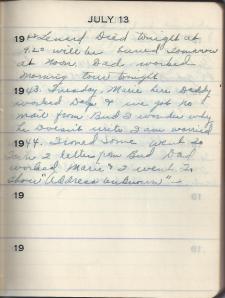 JULY 13
19 42 Lenard Died tonight at
9.20 will be buried tomorrow
at noon. Dad worked
morning tour tonight
1943. Tuesday, Marie here Daddy
worked Days & we got no
mail from Bud I wonder why
he doesn't write I am worried
1944. Ironed Some went to
2 letters from Bud Dad
worked Marie & I went to
Show "Address Unknown"
19
19